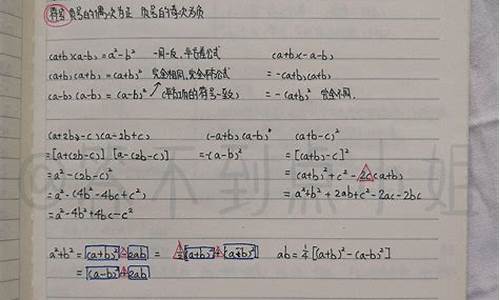 符号 负号的偶次为正 负号的奇次为负
(a+b)(a-b)=a²-b² 一同一反,平方差公式 (a+b)(-a-b)
(a+b)(a+b)=(a+b)² 完全相同,完全平方公式 =-(a+b)(a+b)
(a-b)(a-b)=(a-b)² (平方项的符号一致) =-(a+b)² 完全不同.
(a+2b-c)(a-2b+c) (-a+b)(a-b) (a+b-c)²
=[a+(2b-c)][a-(2b-c)] =-(a-b)² =[(a+b)-c]²
=a²-(2b-c)² =(a+b)²+c²-2c(a+b)
=a²-(4b²-4bc+c²) =a²+b²+2ab+c²-2ac-2bc
=a²-4b²+4bc-c²
a²+b²=(a+b)²-2ab ab=¼[(a+b)²-(a-b)²]
=(a-b)²+2ab